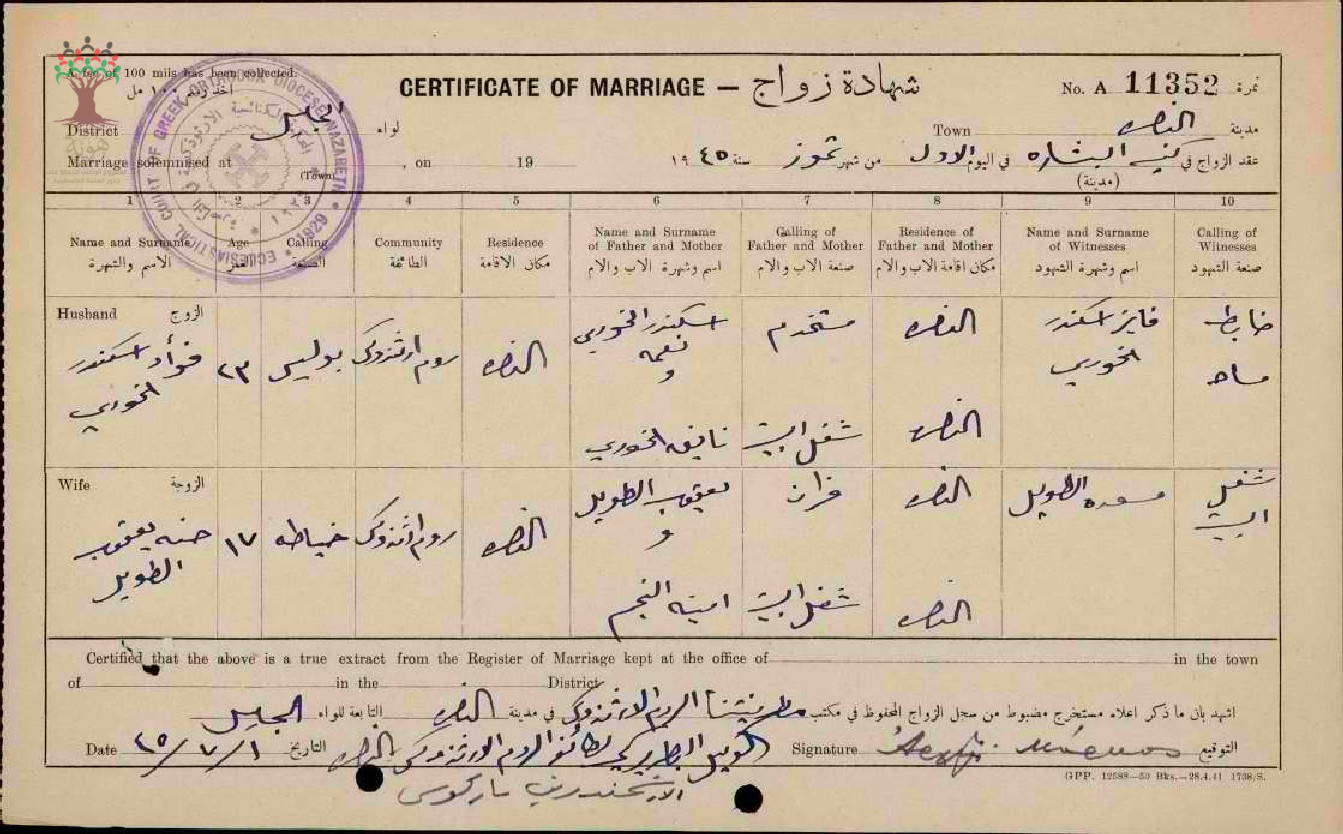 A fee of 100 mils has been collected.
CERTIFICATE OF MARRIAGE — شهادة زواج
No. A 11352 نمرة
District الجليل لواء
Town الناصره مدينة
Marriage solemnised at , on 19
(Town)
عقد الزواج في كنيسة البشاره في اليوم الاول من شهر تموز سنة ١٩٤٥
(مدينة)
COURT OF GREEK ORTHODOX DIOCESE NAZARETH * 1929 * ECCLESIASTICAL
1 2 3 4 5 6 7 8 9 10
Name and Surname
الاسم والشهرة
Age
العمر
Calling
الصنعة
Community
الطائفة
Residence
مكان الاقامة
Name and Surname
of Father and Mother
اسم وشهرة الاب والام
Calling of
Father and Mother
صنعة الاب والام
Residence of
Father and Mother
مكان اقامة الاب والام
Name and Surname
of Witnesses
اسم وشهرة الشهود
Calling of
Witnesses
صنعة الشهود
Husband الزوج
فؤاد اسكندر
الخوري
٢٣
بوليس
روم ارثوذكس
الناصره
اسكندر الخوري
نعمه
و
نايفه الخوري
مستخدم
شغل البيت
الناصره
الناصره
فايز اسكندر
الخوري
ضابط
مساحه
Wife الزوجة
حنه يعقوب
الطويل
١٧
خياطه
روم ارثوذكس
الناصره
يعقوب الطويل
و
امينه النجم
فران
شغل البيت
الناصره
الناصره
مسعده الطويل
شغل
البيت
Certified that the above is a true extract from the Register of Marriage kept at the office of in the town
of in the District
اشهد بان ما ذكر اعلاه مستخرج مضبوط من سجل الزواج المحفوظ في مكتب مطرنيتنا الروم الارثوذكس في مدينة الناصره التابعة للواء الجليل
Date ٤٥/٧/١ التاريخ
الوكيل البطريركي لطائفة الروم الارثوذكس الناصره
Signature التوقيع
G.P.P. 12588—50 Bks.—28.4.41 1738/S.
الارشمندريت ماركوس